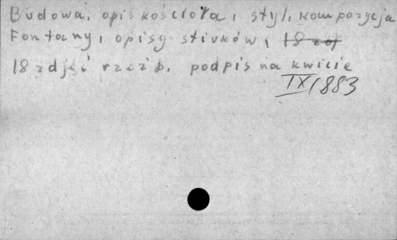 Budowa, opis kościoła, styl, kompozycja
Fontany, opisy stiuków, 18 zdj
18 zdjęć rzeźb. podpis na kwicie
IX 1883